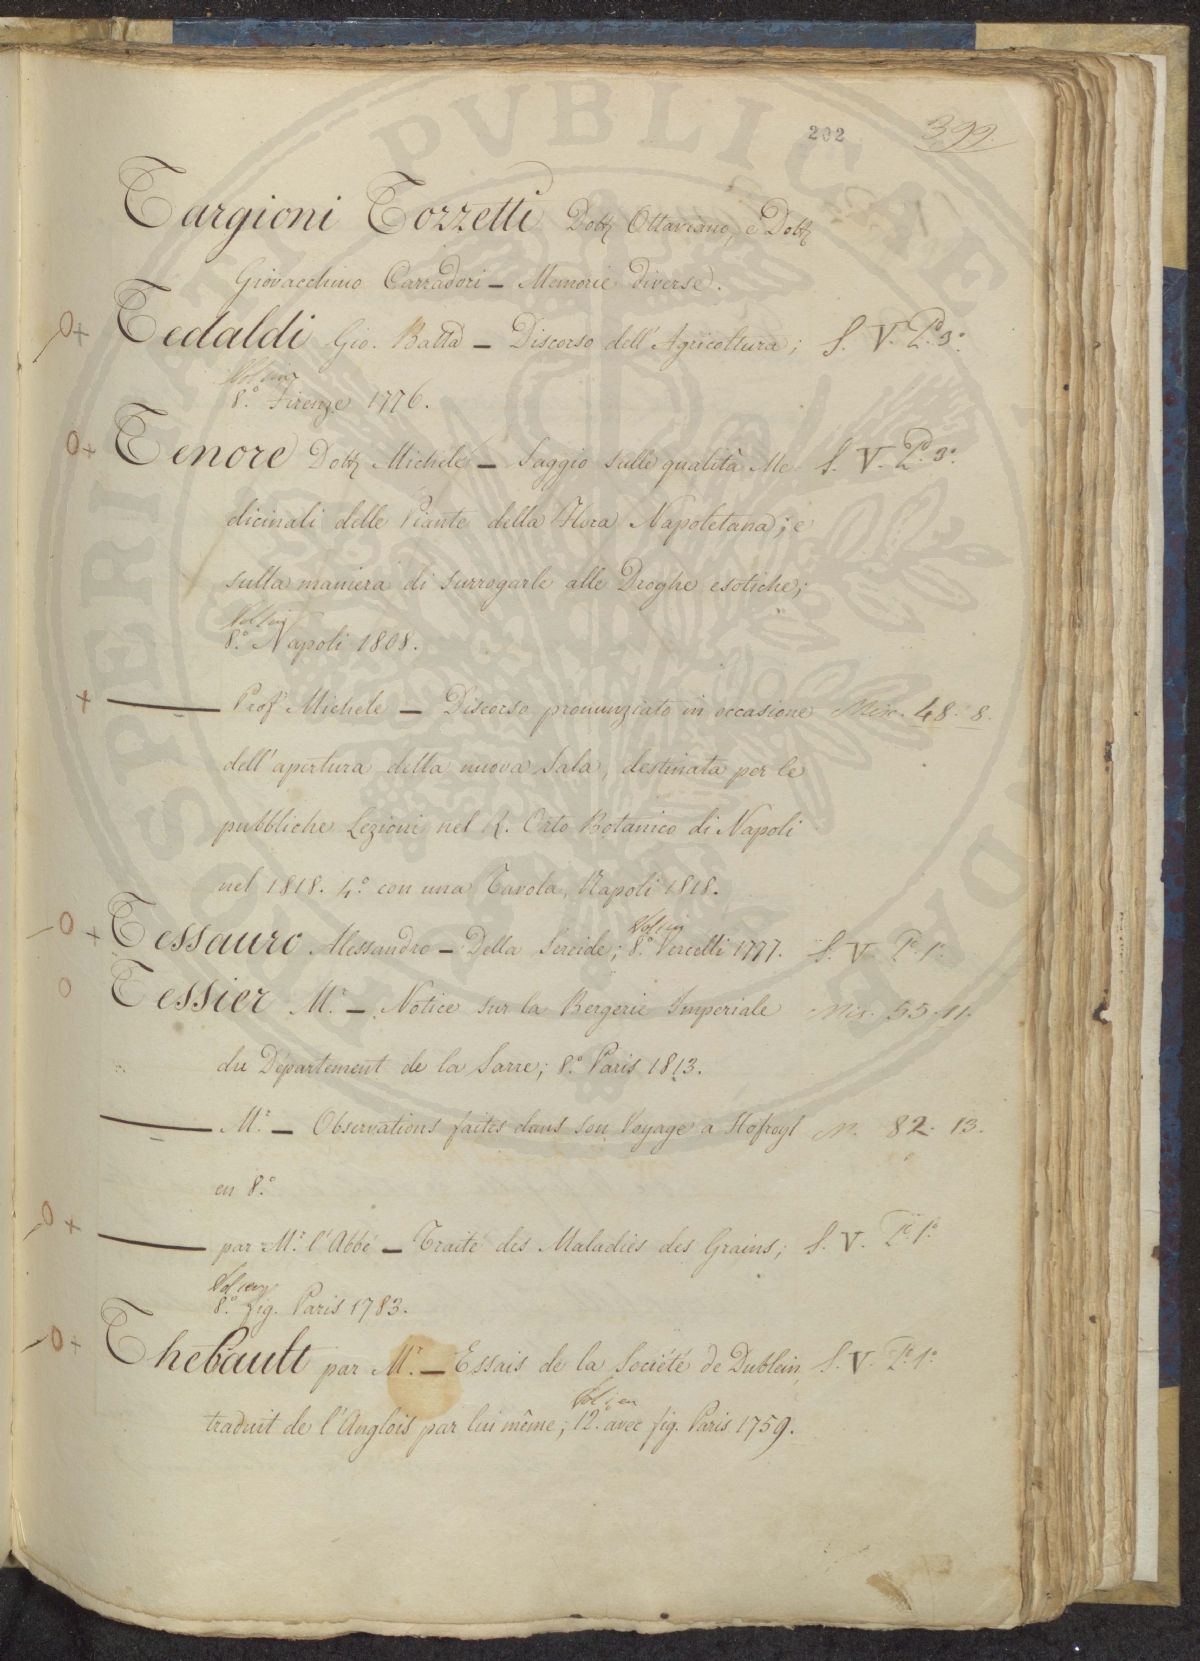 202
399.
Targioni Tozzetti Dott. Ottaviano, e Dott.
Giovacchino Carradori — Memorie diverse.
Tedaldi Gio. Batta — Discorso dell' Agricoltura; S. V. P.º 3.º
Vol. in
8.º Firenze 1776.
Tenore Dott. Michele — Saggio sulle qualità Me- S. V. P.º 3.º
dicinali delle Piante della Flora Napoletana; e
sulla maniera di surrogarle alle Droghe esotiche;
Vol. in
8.º Napoli 1808.
—— Prof. Michele — Discorso pronunziato in occasione Mis. 48. 8.
dell' apertura della nuova Sala, destinata per le
pubbliche Lezioni nel R. Orto Botanico di Napoli
nel 1818. 4.º con una Tavola, Napoli 1818.
Tessauro Alessandro — Della Sereide; Vol. in 8.º Vercelli 1777. S. V. P.º 1.º
Tessier M.r — Notice sur la Bergerie Imperiale Mis. 55. 11.
du Département de la Sarre; 8.º Paris 1813.
—— M.r — Observations faites dans son Voyage a Hofwyl M. 82. 13.
en 8.º
—— par M.r l'Abbé — Traité des Maladies des Grains; S. V. P.º 1.º
Vol. en
8.º fig. Paris 1783.
Thebault par M.r — Essais de la Société de Dublein, S. V. P.º 1.º
traduit de l'Anglois par lui même; Vol. en 12.º avec fig. Paris 1759.